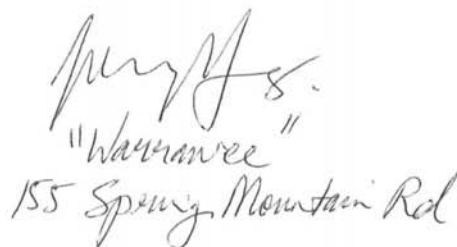 "Warrawee"
155 Spring Mountain Rd